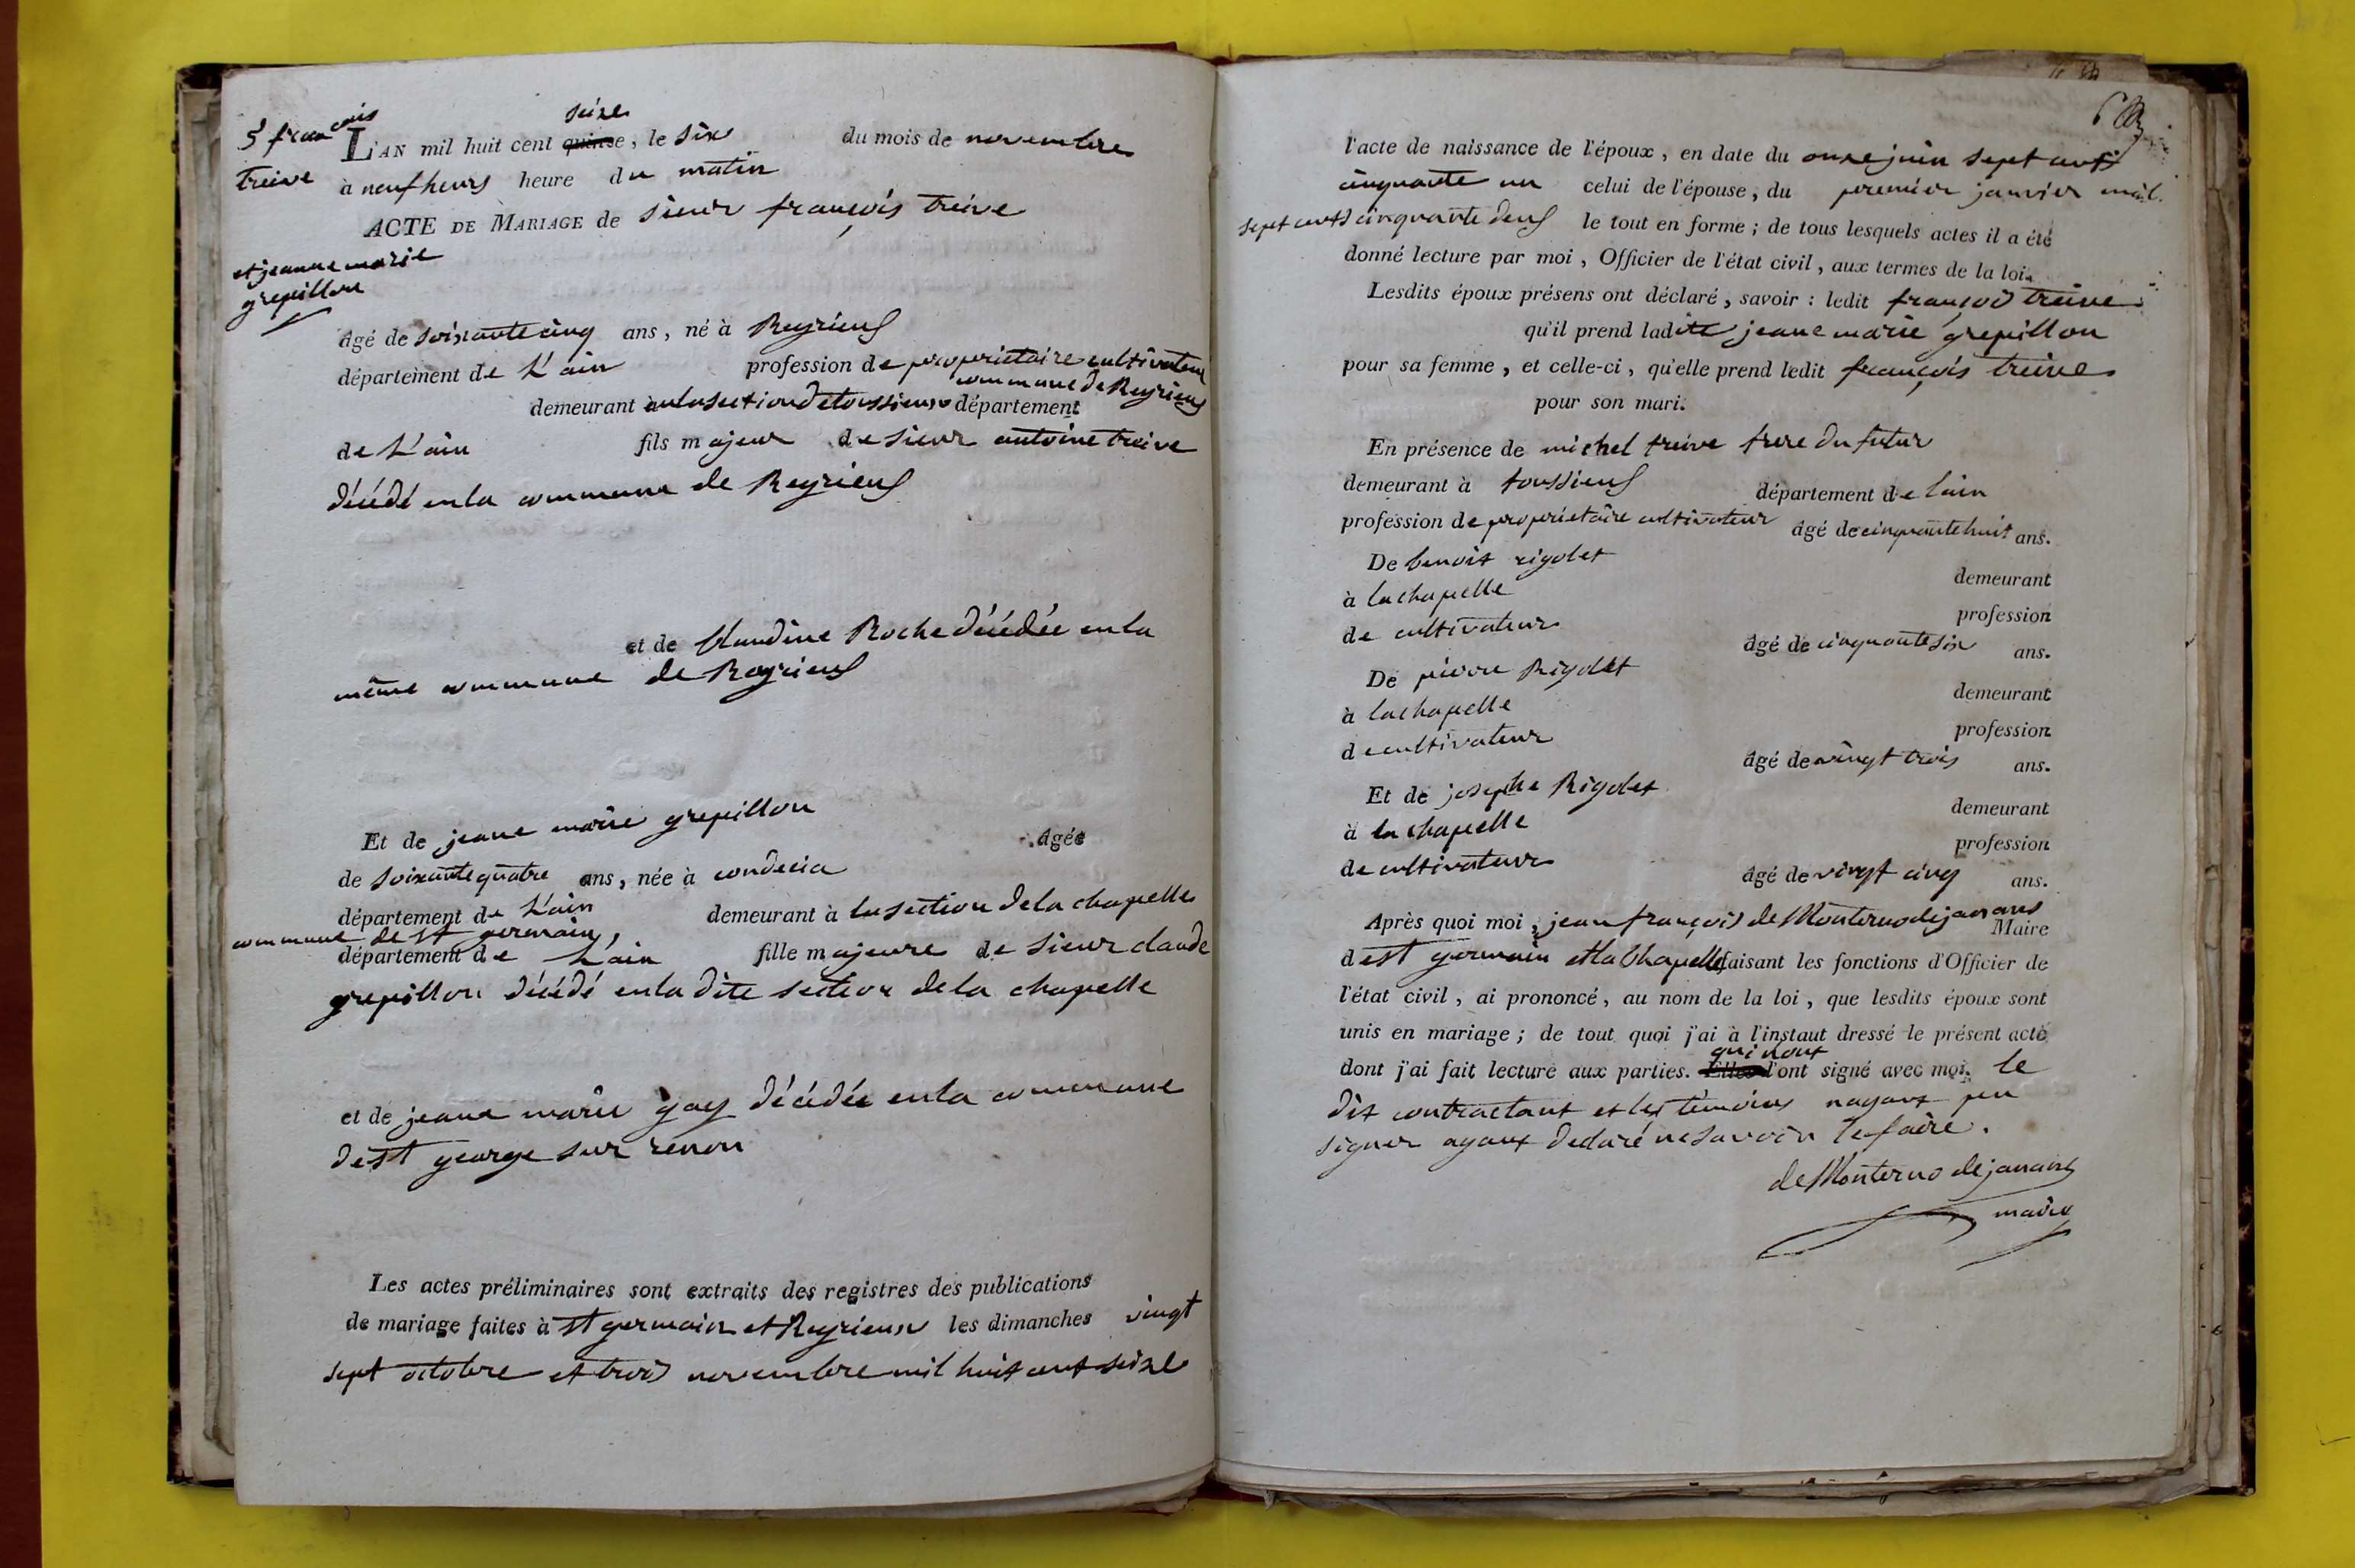 5 francois
treive
et jeanne marie
grepillon
seize
L'AN mil huit cent quinze, le six du mois de novembre
à neuf heurs heure du matin
ACTE DE MARIAGE de sieur françois treive
âgé de soixante cinq ans, né à Reyrieux
département de L'ain profession de proprietaire cultivateur
commune de Reyrieux
demeurant à en la section de toussieux département
de L'ain fils majeur de sieur antoine treive
décédé en la commune de Reyrieux
et de Claudine Roche décédée en la
même commune de Reyrieux
Et de jeane marie grepillon âgée
de soixante quatre ans, née à condecia
département de L'ain demeurant à la section de la chapelle
commune de st germain,
département de L'ain fille majeure de sieur claude
grepillon décédé en la dite section de la chapelle
et de jeane marie gay décédée en la commune
de st george sur renon
Les actes préliminaires sont extraits des registres des publications
de mariage faites à st germain et Reyrieux les dimanches vingt
sept octobre et trois novembre mil huit cent seize
l'acte de naissance de l'époux, en date du onze juin sept cents
cinquante un celui de l'épouse, du premier janvier mil
sept cents cinquante deux le tout en forme; de tous lesquels actes il a été
donné lecture par moi, Officier de l'état civil, aux termes de la loi.
Lesdits époux présens ont déclaré, savoir: ledit françois treive
qu'il prend ladite jeane marie grepillon
pour sa femme, et celle-ci, qu'elle prend ledit françois treive
pour son mari.
En présence de michel treive frere du futur
demeurant à toussieux département de lain
profession de proprietaire cultivateur âgé de cinquante huit ans.
De benoit rigolet demeurant
à la chapelle profession
de cultivateur âgé de cinquante six ans.
De pierre Rigolet demeurant
à la chapelle profession
de cultivateur âgé de vingt trois ans.
Et de josephe Rigolet demeurant
à la chapelle profession
de cultivateur âgé de vingt cinq ans.
Après quoi moi, jean françois de Monterno de janans Maire
de st germain et la Chapelle faisant les fonctions d'Officier de
l'état civil, ai prononcé, au nom de la loi, que lesdits époux sont
unis en mariage; de tout quoi j'ai à l'instant dressé le présent acte
qui nont
dont j'ai fait lecture aux parties. Elles l'ont signé avec moi. le
dit contractant et les temoins nayant peu
signer ayant declaré ne savoir le faire.
de Monterno de janans
maire